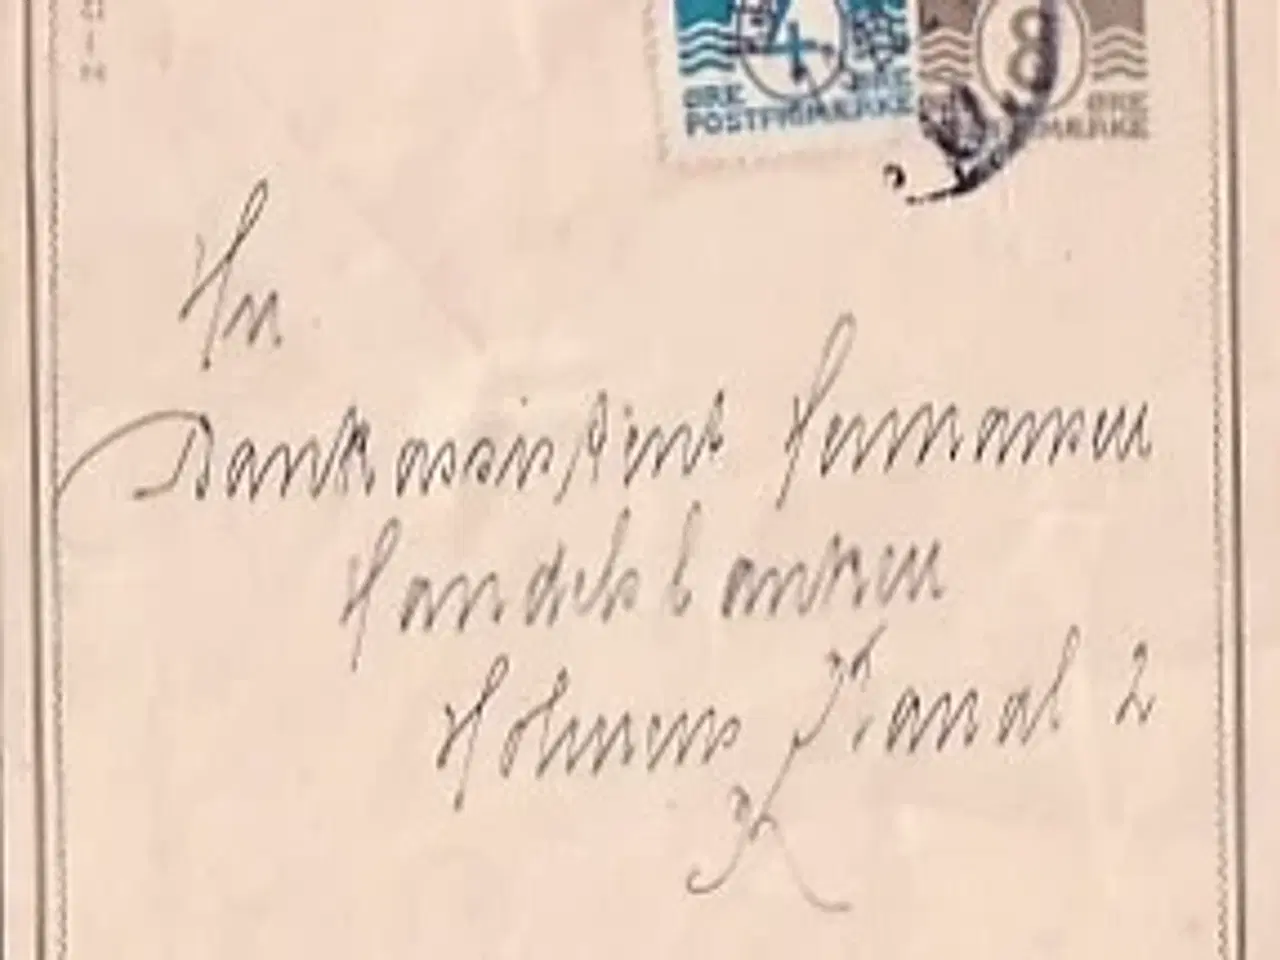 4 8
ØRE ØRE ØRE
POSTFRIMÆRKE MÆRKE
Hr.
Bankassistent Hermansen
Handelsbanken
Holmens Kanal 2
K